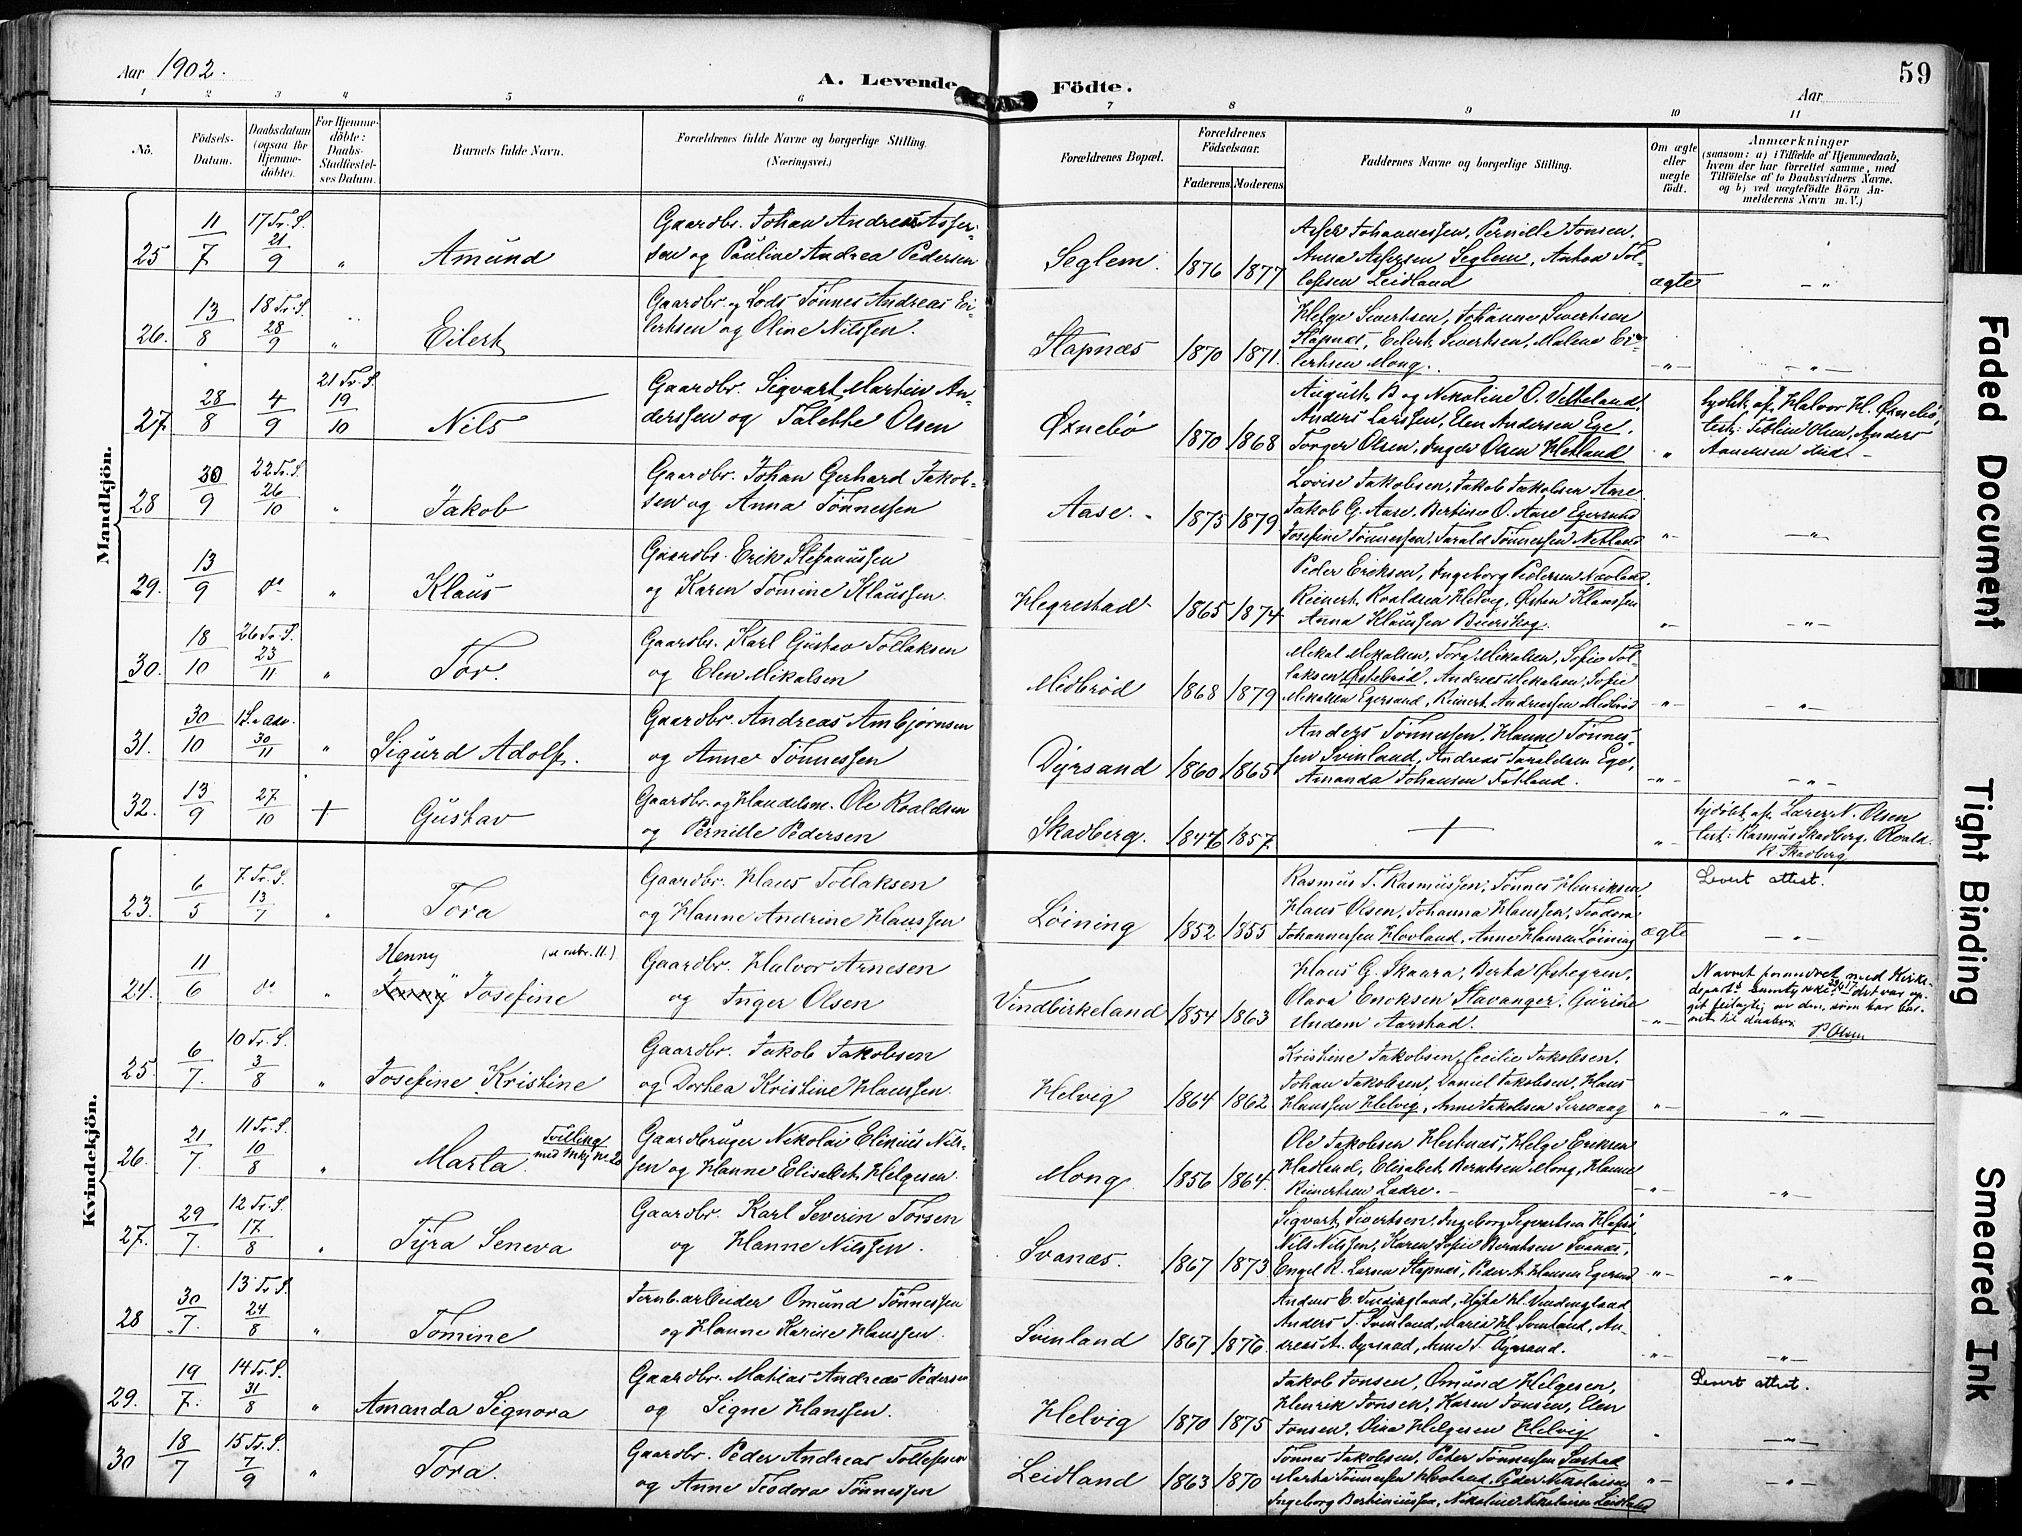 Aar 1902.
A. Levende Födte.
59
Aar
1 2 3 4 5 6 7 8 9 10 11
Nö.
Födsels-Datum.
Daabsdatum (ogsaa for Hjemme-döbte).
For Hjemme-döbte: Daabs-Stadfæstel-ses Datum.
Barnets fulde Navn.
Forældrenes fulde Navne og borgerlige Stilling. (Næringsvei.)
Forældrenes Bopæl.
Forældrenes Födselsaar.
Faderens. Moderens.
Faddernes Navne og borgerlige Stilling.
Om ægte eller uægte födt.
Anmærkninger
(saasom: a) i Tilfælde af Hjemmedaab, hvem der har forrettet samme, med Tilföielse af to Daabsvidners Navne, og b) ved uægtefödte Börn An-melderens Navn m. V.)
Mandkjön.
25 11/7 17 Tr. S. 21/9 " Amund
Gaardbr. Johan Andreas Asser-
sen og Pauline Andrea Pedersen
Seglem. 1876 1877
Asser Johannessen, Pernille Jonsen,
Anna Assersen Seglem, Anton Tol-
lefsen Leidland
ægte - " -
26. 13/8 18 Tr. S. 28/9 " Eilert
Gaardbr. og Lods Tönnes Andreas Ei-
lertsen og Oline Nilssen.
Stapnæs 1870 1871.
Helge Sivertsen, Johanne Sivertsen
Stapnæs, Eilert Sivertsen, Malene Ei-
lertsen Mong.
- " - - " -
27. 28/8 4/9 21 Tr. S. 19/10 Nils
Gaardbr. Sigvart Martin An-
derssen og Talette Olsen
Øxnebö 1870 1868
August B. og Nikoline O. Vetteland,
Anders Larssen, Elen Andersen Ege,
Torger Olsen, Inger Olsen Hetland
"
hjdöbt af Halvor H. Øxnebö,
test: Teblin Olsen, Anders
28 30/9 22 Tr. S. 26/10 " Jakob
Gaardbr. Johan Gerhard Jakob-
sen og Anna Tönnessen
Aase. 1875 1879
Lovise Jakobsen, Jakob Jakobsen Aase,
Jakob G. Aase, Bertine O. Aase Egersund
Josefine Tönnessen, Tarald Tönnessen Netland
- " - - " -
29. 13/9 do " Klaus
Gaardbr. Erik Stefanussen
og Karen Tomine Klaussen.
Hegrestad 1865 1874
Peder Eriksen, Ingeborg Pedersen Navland
Reinert Roaldsen Helvig, Østen Klaussen
Anna Klaussen Buerskog.
- " - - " -
30. 18/10 26 Tr. S. 23/11 " Tor.
Gaardbr. Karl Gustav Tollaksen
og Elen Mikalsen
Midbröd 1868 1879
Mikal Mikalsen, Tora Mikalsen, Sofie Tol-
laksen Østebröd, Andreas Mikalsen, Sofie
Mikalsen Egersund, Reinert Andreassen Midbröd
- " - - " -
31. 30/10 1 S. i Adv. 30/11 " Sigurd Adolf.
Gaardbr. Andreas Ambjörnsen
og Anne Tönnessen
Dyrsand 1860 1865
Anders Tönnessen, Hanne Tönnes-
sen Svinland, Andreas Taraldsen Ege,
Amanda Johansen Fotland.
- " - - " -
32. 13/9 27/10 + Gustav
Gaardbr. og Handelsm. Ole Roaldsen
og Pernille Pedersen
Skadberg. 1847 1857.
+
- " -
hjdöbt af Lærer N. Olsen
test: Rasmus Skadberg, Roald
R. Skadberg
Kvindekjön.
23. 6/5 7. Tr. S. 13/7 " Tora
Gaardbr. Hans Tollaksen
og Hanne Andrine Hanssen
Löining 1852 1855
Rasmus T. Rasmussen, Tönnes Henriksen,
Hans Olsen, Johanna Hanssen, Teodora
Johannessen Hovland, Anne Hansen Löining
ægte
Levert attest.
- " -
24. 11/6 do " Henny (se anbr. 11.)
Jenny Josefine
Gaardbr. Halvor Arnesen
og Inger Olsen
Vindbirkeland 1854 1863
Hans G. Skaara, Berta Østegren,
Olava Eriksen Stavanger, Gurine
Undem Aarstad.
- " -
Navnet forandret med Kirke-
depart.s samtykke, det var op-
git feilagtig av den, som har baa-
ret til daaben
P. Olsen
25. 6/7 10 Tr. S. 3/8 " Josefine Kristine
Gaardbr. Jakob Jakobsen
og Dorthea Kristine Hanssen.
Helvig 1864 1862
Kristine Jakobsen, Cecilie Jakobsen,
Johan Jakobsen, Daniel Jakobsen, Hans
Hanssen Helvig, Anne Jakobsen Sirevaag
- " - - " -
26. 21/7 11 Tr. S. 10/8 " Marta. Tvilling med Mkj no 20
Gaardbruger Nikolai Elinius Nils-
sen og Hanne Elisabet Helgesen.
Mong. 1856 1864.
Ole Jakobsen Hestnæs, Helge Eriksen
Hadland, Elisabet Berntsen Mong, Hanne
Reinertsen Ladre.
- " - - " -
27. 29/7 12 Tr. S. 17/8 " Tyra Seneva
Gaardbr. Karl Severin Torsen
og Hanne Nilssen.
Svanæs. 1867 1873
Sigvart Sivertsen, Ingeborg Sigvartsen
Nils Nilssen, Karen Sofie Berntsen Svanæs,
Engel R. Larsen Stapnæs, Peder A. Hansen Egersund
- " - - " -
28 30/7 13 Tr. S. 24/8 " Tomine
Jernb.arbeider Omund Tönnessen
og Hanne Karine Hanssen.
Svinland 1867 1876
Anders T. Svinland, Maria H. Svinland, An-
dreas A. Dyrsand, Anne T. Dyrsand.
- " - - " -
29. 19/7 14 Tr. S. 31/8 " Amanda Signora
Gaardbr. Matias Andreas Pedersen
og Signe Hanssen.
Helvig 1870 1875
Jakob Jonsen, Omund Helgesen,
Henrik Jonsen, Karen Jonsen, Elen
Jonsen, Oina Helgesen Helvig
Levert attest.
- " -
30 18/7 15 Tr. S. 7/9 " Tora.
Gaardbr. Peder Andreas Tollefsen
og Anne Teodora Tönnessen
Leidland 1863 1870
Tönnes Jakobsen, Peter Tönnessen
Marta Tönnessen Hovland, Peder Nikolaisen
Ingeborg Bertiniussen, Nikoline Nikolaisen Leidland
- " - - " -
Faded Document
Tight Binding
Smeared Ink